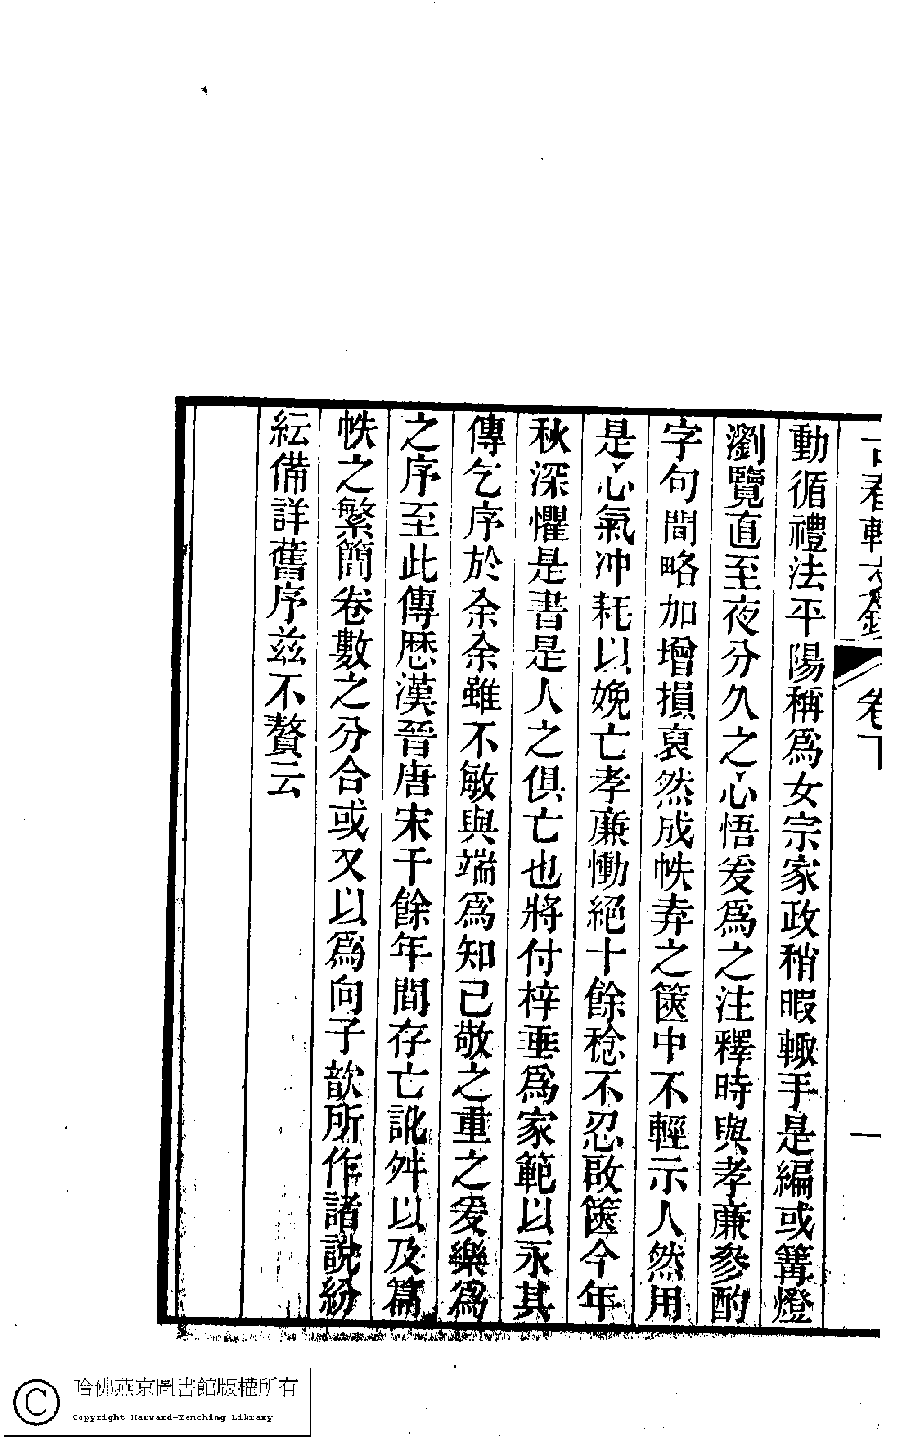 古春軒文鈔 卷下
動循禮法平陽稱為女宗家政稍暇輙手是編或篝燈
瀏覽直至夜分久之心悟爰為之注釋時與孝廉參酌
字句間略加增損裒然成帙弆之篋中不輕示人然用
是心氣冲耗以娩亡孝廉慟絕十餘稔不忍啟篋今年
秋深懼是書是人之俱亡也將付梓垂為家範以永其
傳乞序於余余雖不敏與端為知己敬之重之爰樂為
之序至此傳歷漢晉唐宋千餘年間存亡訛舛以及篇
帙之繁簡卷數之分合或又以為向子歆所作諸說紛
紜備詳舊序茲不贅云
哈佛燕京圖書館版權所有
Copyright Harvard-Yenching Library